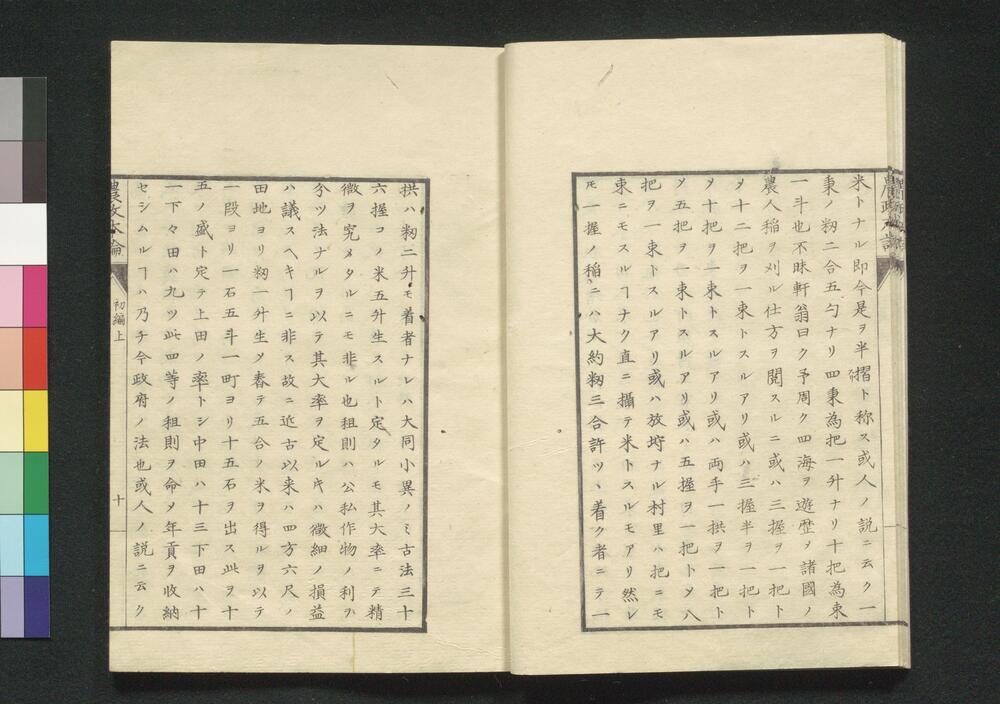 米トナル即今是ヲ半摺ト称ス或人ノ説ニ云ク一
秉ノ籾二合五勺ナリ四秉為把一升ナリ十把為束
一斗也不昧軒翁曰ク予周ク四海ヲ遊歴〆諸國ノ
農人稲ヲ刈ル仕方ヲ閲スルニ或ハ三握ヲ一把ト
〆十二把ヲ一束トスルアリ或ハ三握半ヲ一把ト
〆十把ヲ一束トスルアリ或ハ両手一拱ヲ一把ト
〆五把ヲ一束トスルアリ或ハ五握ヲ一把ト〆八
把ヲ一束トスルアリ或ハ放埓ナル村里ハ把ニモ
束ニモスルヿナク直ニ攝テ米トスルモアリ然レ
𪜈一握ノ稲ニハ大約籾三合許ツヽ着ク者ニテ一
拱ハ籾二升モ着者ナレハ大同小異ノミ古法三十
六握コノ米五升生スルト定タルモ其大率ニテ精
微ヲ究メタルニモ非ル也租則ハ公私作物ノ利ヲ
分ツ法ナルヲ以テ其大率ヲ定ルキハ微細ノ損益
ハ議スヘキヿニ非ス故ニ近古以来ハ四方六尺ノ
田地ヨリ籾一升生〆舂テ五合ノ米ヲ得ルヲ以テ
一段ヨリ一石五斗一町ヨリ十五石ヲ出ス此ヲ十
五ノ盛ト定テ上田ノ率トシ中田ハ十三下田ハ十
一下々田ハ九ツ此四等ノ租則ヲ命〆年貢ヲ収納
セシムルヿハ乃チ今政府ノ法也或人ノ説ニ云ク
農政本論
初編上
十